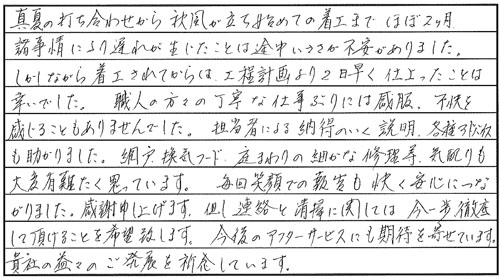 真夏の打ち合わせから 秋風が立ち始めての着工まで ほぼ2ヶ月
諸事情により遅れが生じたことは途中いささか不安がありました。
しかしながら着工されてからは、工程計画より2日早く仕上ったことは
幸いでした。 職人の方々の丁寧な仕事ぶりには感服、不快を
感じることもありませんでした。 担当者による納得のいく説明、各種アドバイス
も助かりました。 網戸、換気フード、庭まわりの細かな修理等、気配りも
大変有難たく思っています。 毎回笑顔での報告も 快く安心につな
がりました。感謝申し上げます。但し 連絡と清掃に関しては 今一歩徹底
して頂けることを希望致します。 今後のアフターサービスにも期待を寄せています。
貴社の益々のご発展を祈念しています。